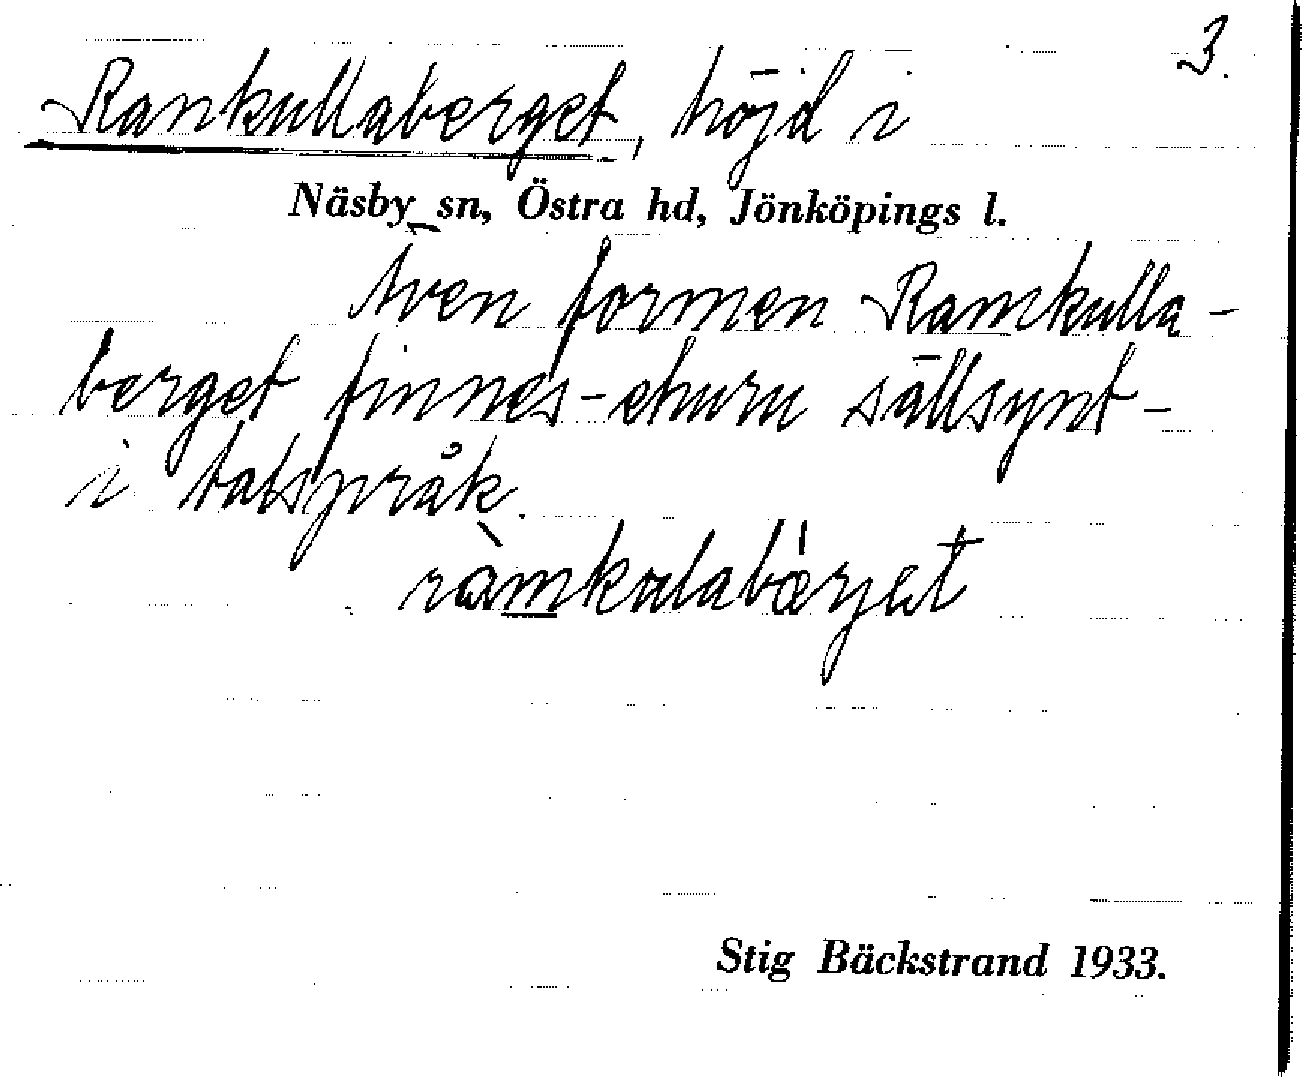 3.
Rankullaberget, höjd i
Näsby sn, Östra hd, Jönköpings l.
Även formen Ramkulla-
berget finnes - ehuru sällsynt -
i talspråk.
ràmkulabærjet
Stig Bäckstrand 1933.